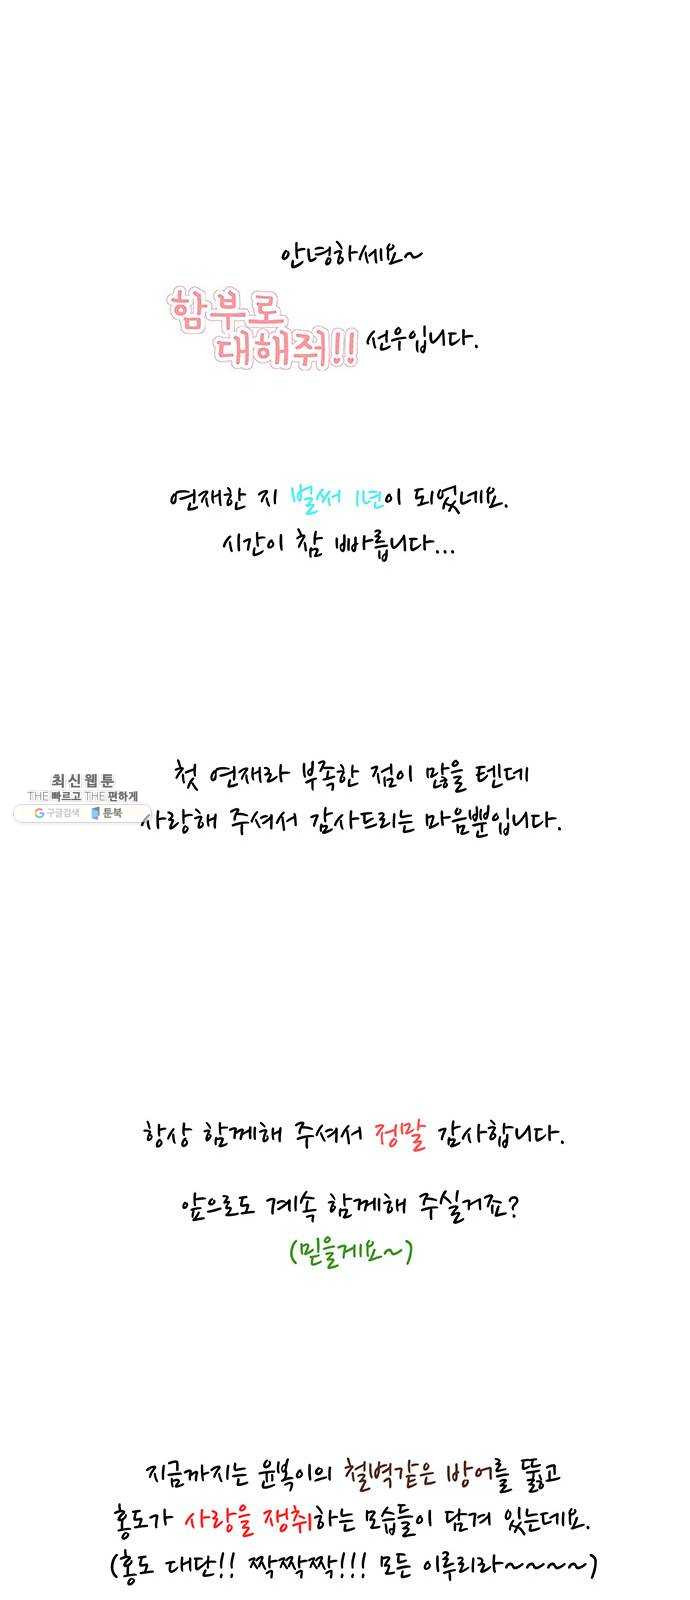 안녕하세요~
함부로
대해줘!! 선우입니다.
연재한 지 벌써 1년이 되었네요.
시간이 참 빠릅니다...
첫 연재라 부족한 점이 많을 텐데
최신웹툰
THE 빠르고 THE 편하게
구글검색 툰북
사랑해 주셔서 감사드리는 마음뿐입니다.
항상 함께해 주셔서 정말 감사합니다.
앞으로도 계속 함께해 주실거죠?
(믿을게요~)
지금까지는 윤복이의 철벽같은 방어를 뚫고
홍도가 사랑을 쟁취하는 모습들이 담겨 있는데요.
(홍도 대단!! 짝짝짝!!! 모든 이루리라~~~~)